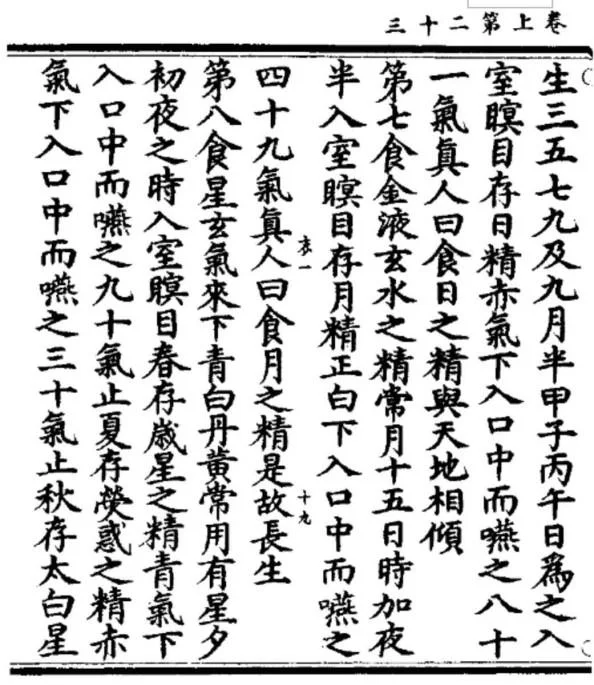 卷上第二十三
生三五七九及九月半甲子丙午日為之入
室瞑目存日精赤氣下入口中而嚥之八十
一氣真人曰食日之精與天地相傾
第七食金液玄水之精常月十五日時加夜
半入室瞑目存月精正白下入口中而嚥之
一 十九
四十九氣真人曰食月之精是故長生
第八食星玄氣來下青白丹黃常用有星夕
初夜之時入室瞑目春存歲星之精青氣下
入口中而嚥之九十氣止夏存熒惑之精赤
氣下入口中而嚥之三十氣止秋存太白星